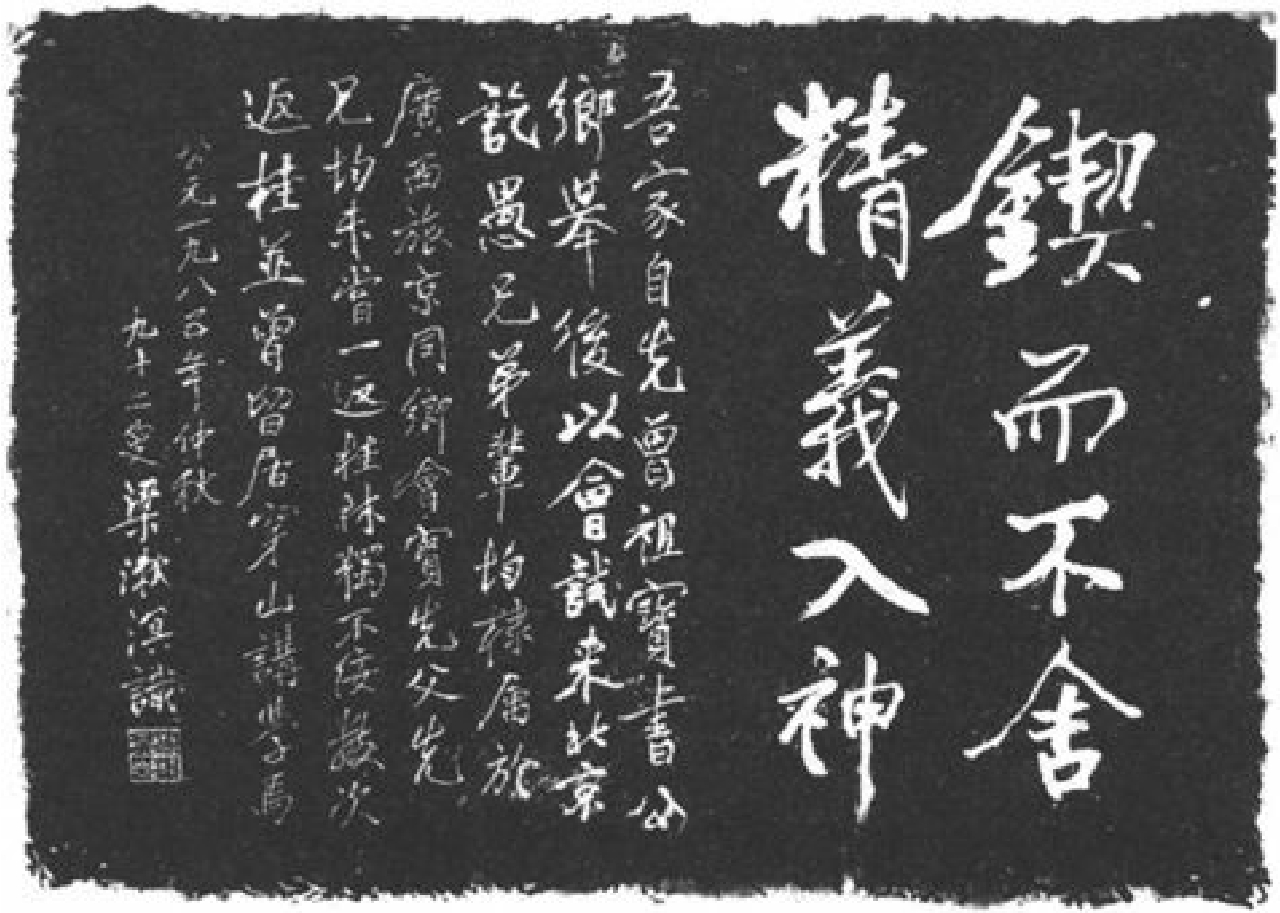 鍥而不舍
精義入神
吾家自先曾祖寶書公
鄉舉後以會試来北京
訖愚兄弟輩均隸屬於
廣西旅京同鄉會實先父先
兄均未嘗一返桂林獨不佞數次
返桂並曾留居穿山講學焉
公元一九八四年仲秋
九十二叟梁漱溟識